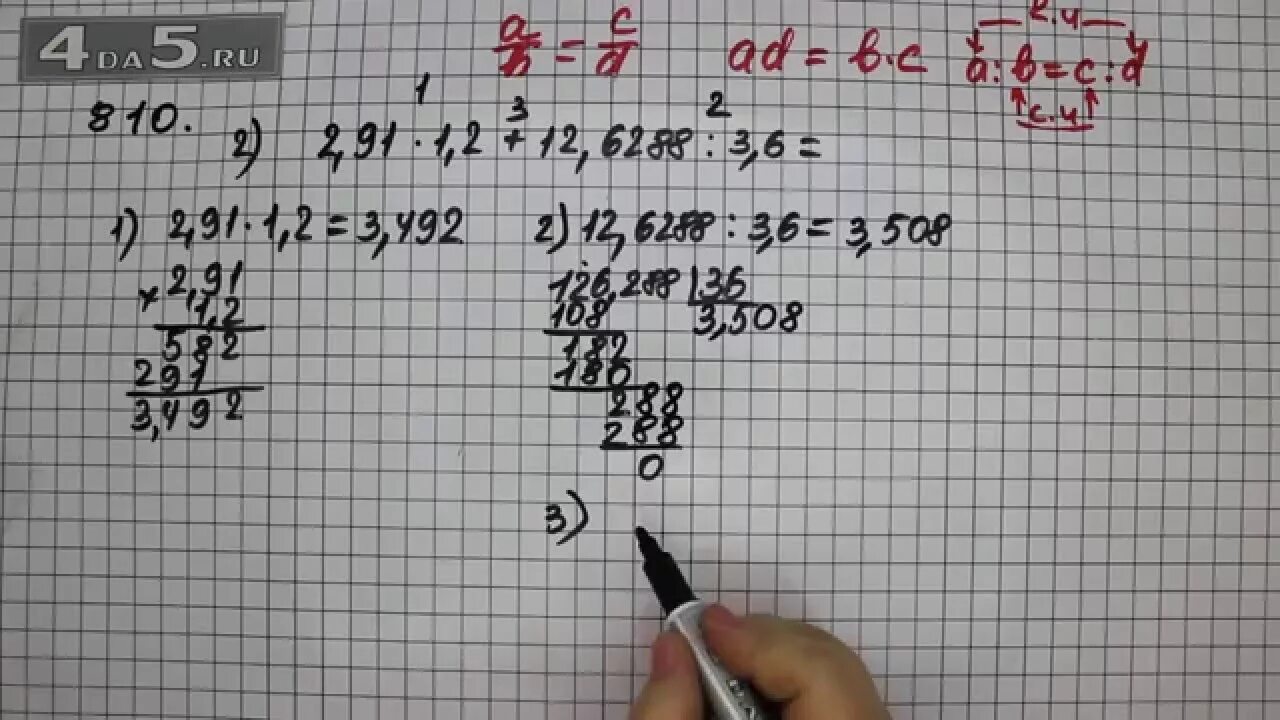 4DA5.RU
a/b = c/d   ad = b·c   к.ч
a:b=c:d
с.ч
810.
1 3 2
2) 2,91 · 1,2 + 12,6288 : 3,6 =
1) 2,91 · 1,2 = 3,492   2) 12,6288 : 3,6 = 3,508
× 2,91
1,2
582
291
3,492
126,288 | 36
108   3,508
182
180
288
288
0
3)